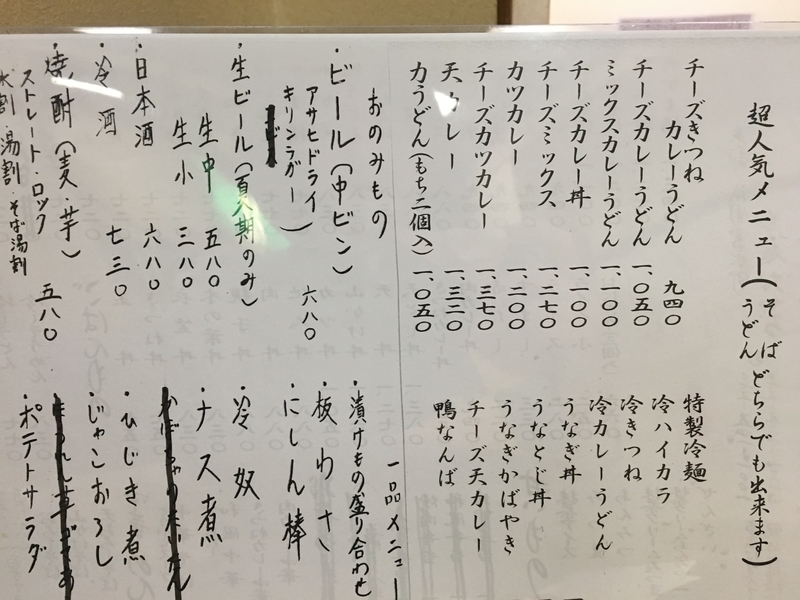 超人気メニュー(そばうどんどちらでも出来ます)
チーズきつねカレーうどん 九四〇
チーズカレーうどん 一、〇五〇
ミックスカレーうどん 一、一〇〇
チーズカレー丼 一、一〇〇
チーズミックス 一、二七〇
カツカレー 一、二〇〇
チーズカツカレー 一、三七〇
天カレー 一、三二〇
力うどん(もち二個入) 一、〇五〇
特製冷麺
冷ハイカラ
冷きつね
冷カレーうどん
うなぎ丼
うなとじ丼
うなぎかばやき
チーズ天カレー
鴨なんば
おのみもの
・ビール(中ビン)
アサヒドライ
キリンラガー) 六八〇
・生ビール(夏期のみ)
生中 五八〇
生小 三八〇
・日本酒 六八〇
・冷酒 七三〇
・焼酎(麦・芋) 五八〇
ストレート・ロック
水割・湯割・そば湯割
一品メニュー
・漬けもの盛り合わせ
・板わさ
・にしん棒
・冷奴
・ナス煮
・ひじき煮
・じゃこおろし
・ポテトサラダ